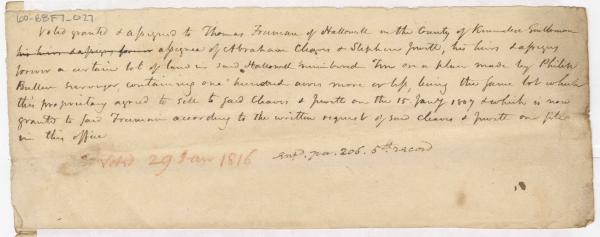 60-EBF7-027
Voted granted & assigned to Thomas Freeman of Hallowell in the County of Kennebec Gentleman
his heirs & assigns forever assignee of Abraham Cleaves & Stephen Jewett, his heirs & assigns
forever a certain lot of land in said Hallowell numbered Two on a plan made by Philip
Bullen Surveyor, containing one hundred acres more or less, being the same lot which
this propriety agreed to sell to said Cleaves & Jewett on the 15 Jany 1807 & which is now
granted to said Freeman according to the written request of said Cleaves & Jewett on file
in this office
Voted 29 Jan 1816
ent. pa. 206. 5th record